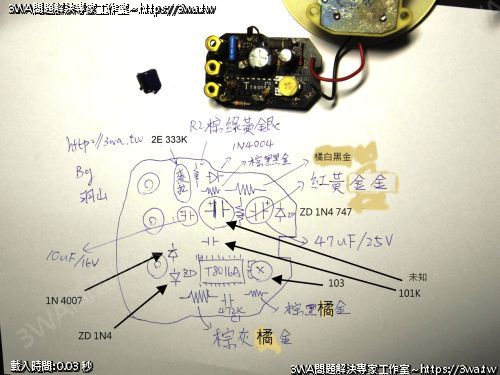 3WA問題解決專家工作室~https://3wa.tw
3WA問題解決專家工作室~https://3wa.tw
T8016A
R2 棕綠黃銀
2E 333K
1N4004
https://3wa.tw
橘白黑金
棕黑黑金
By
羽山
紅黃金金
ZD 1N4 747
47uF/25V
10uF/16V
未知
101K
1N 4007
ZD
T8016A
103
472K
棕黑橘金
ZD 1N4
棕灰橘金
載入時間:0.03 秒
3WA問題解決專家工作室~https://3wa.tw